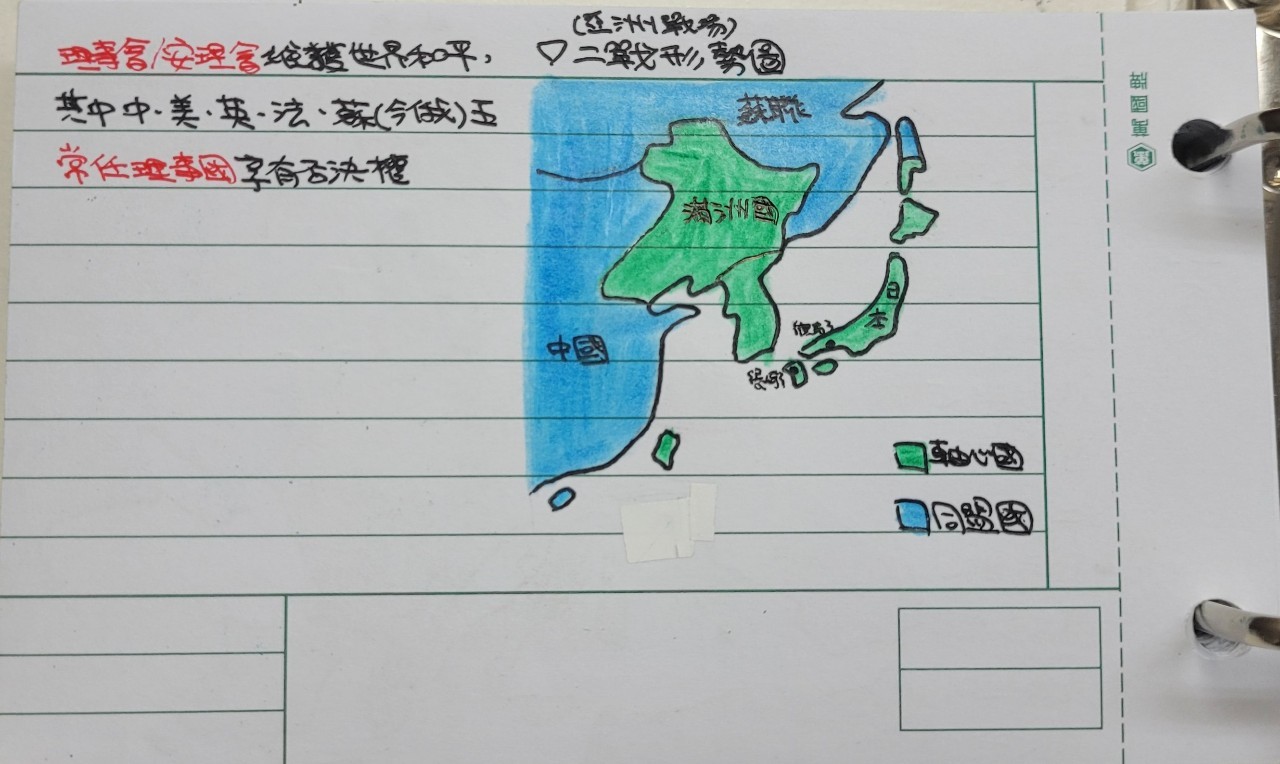 理事會/安理會維護世界和平,
其中中、美、英、法、蘇(今俄)五
常任理事國享有否決權
(亞洲戰場)
▽二戰形勢圖
蘇聯
滿洲國
日本
廣島
長崎
中國
軸心國
同盟國
萬國牌